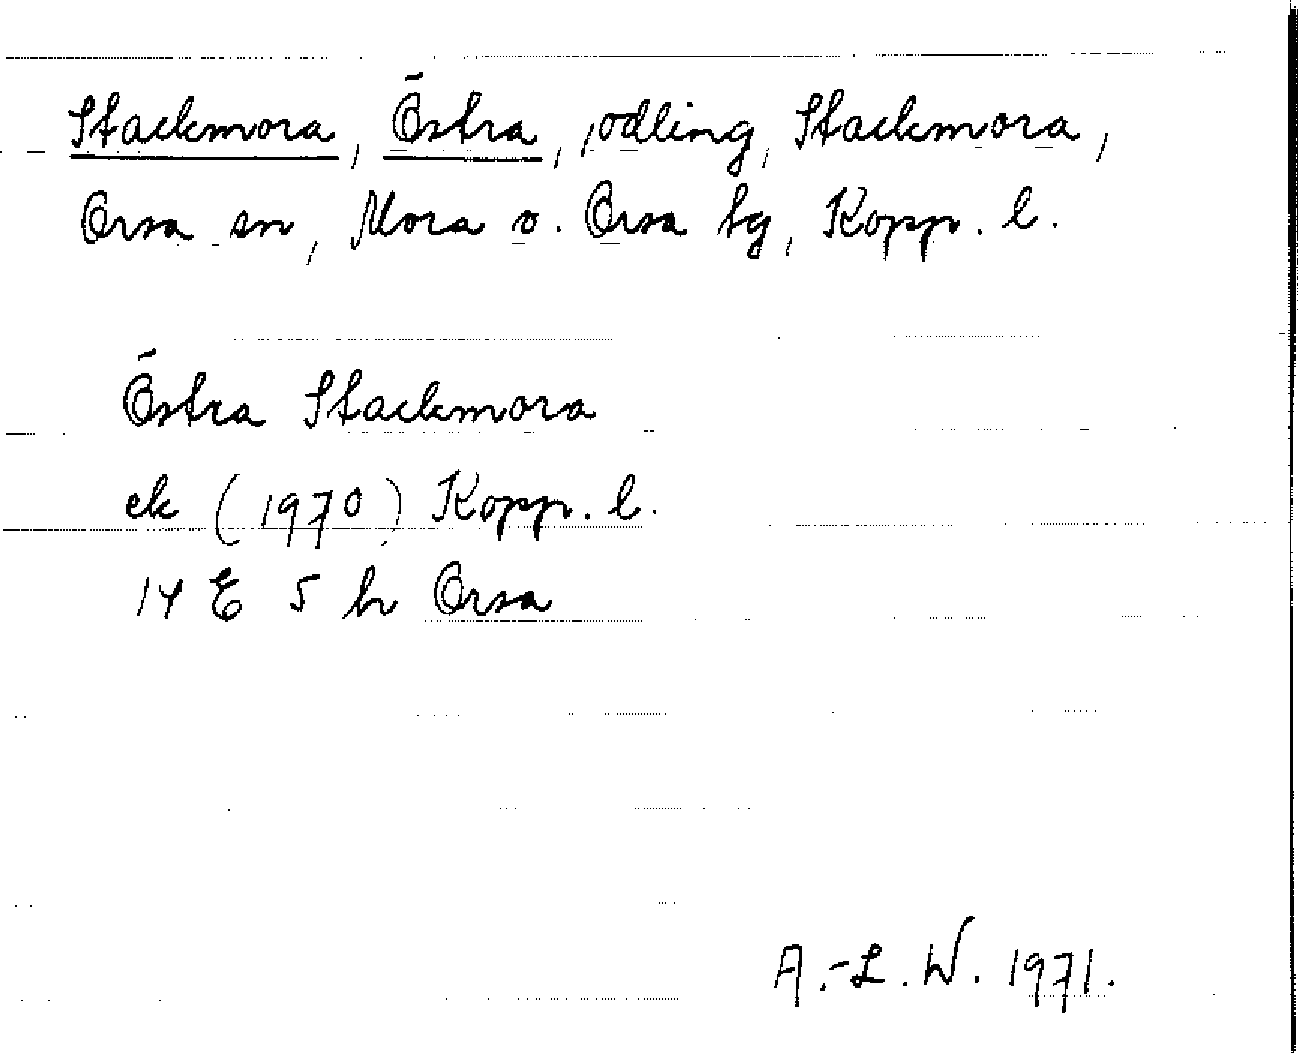 Stackmora, Östra, odling, Stackmora,
Orsa sn, Mora o. Orsa tg, Kopp. l.
Östra Stackmora
ek (1970) Kopp. l.
14 E 5 h Orsa
A.-L. W. 1971.